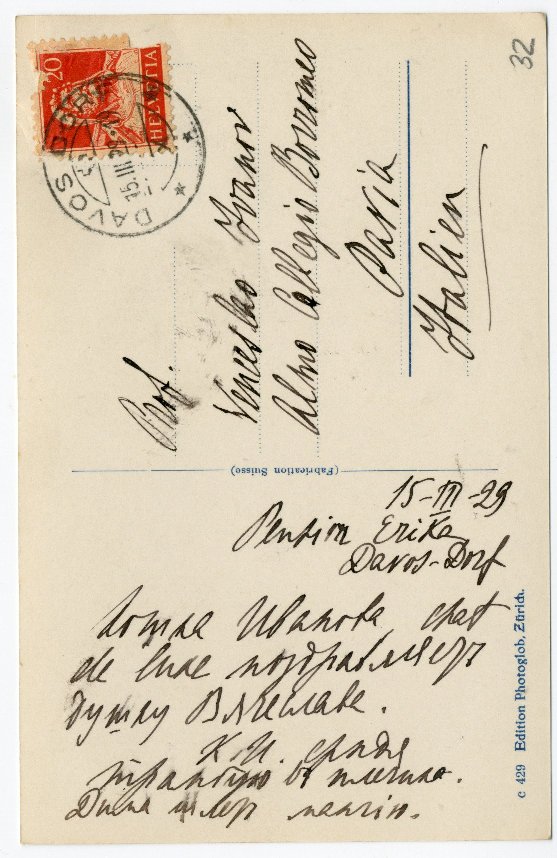 32
20
HELVETIA
DAVOS DORF
15.III.29
Prof.
Venceslao Ivanov
Almo Collegio Borromeo
Pavia
Italien
(Fabrication Suisse)
15-III-29
Pension Erika
Davos-Dorf
Иванова
de luxe поздравляет
душку Вячеслава.
К.И.
Дима шлет
c 429 Edition Photoglob, Zürich.